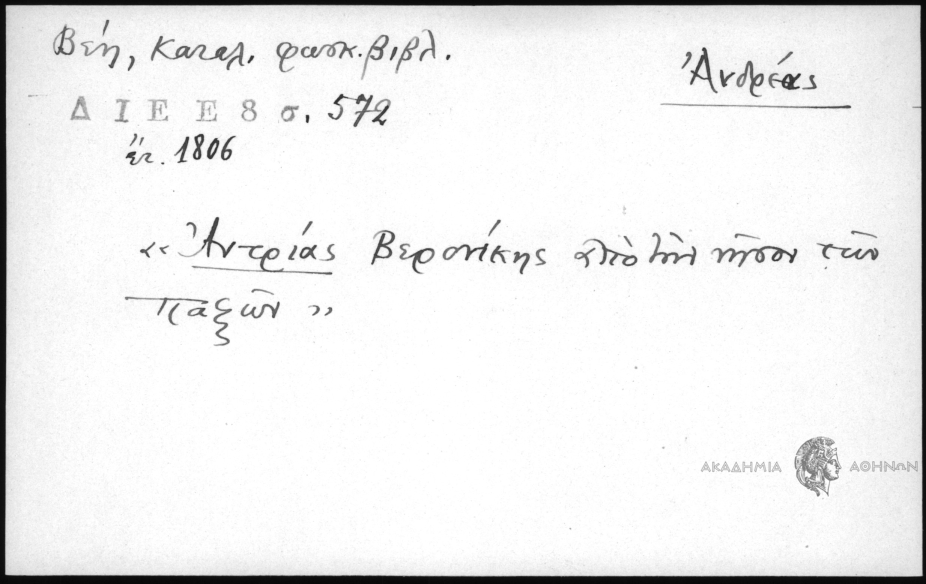 Βέη, Καταλ. φωσκ. βιβλ.
Ἀνδρέας
ΔΙΕΕ 8 σ. 572
ἔτ. 1806
«Ἀντρίας Βερονίκης ἀπὸ τὴν νῆσον τῶν
Παξῶν»
ΑΚΑΔΗΜΙΑ ΑΘΗΝΩΝ